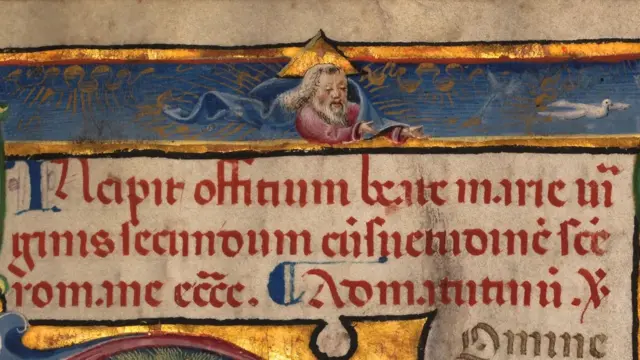 Incipit offitium beate marie uir
ginis secundum cōsuetudinē scē
romane eccē. Ad matutinū. X
Domine